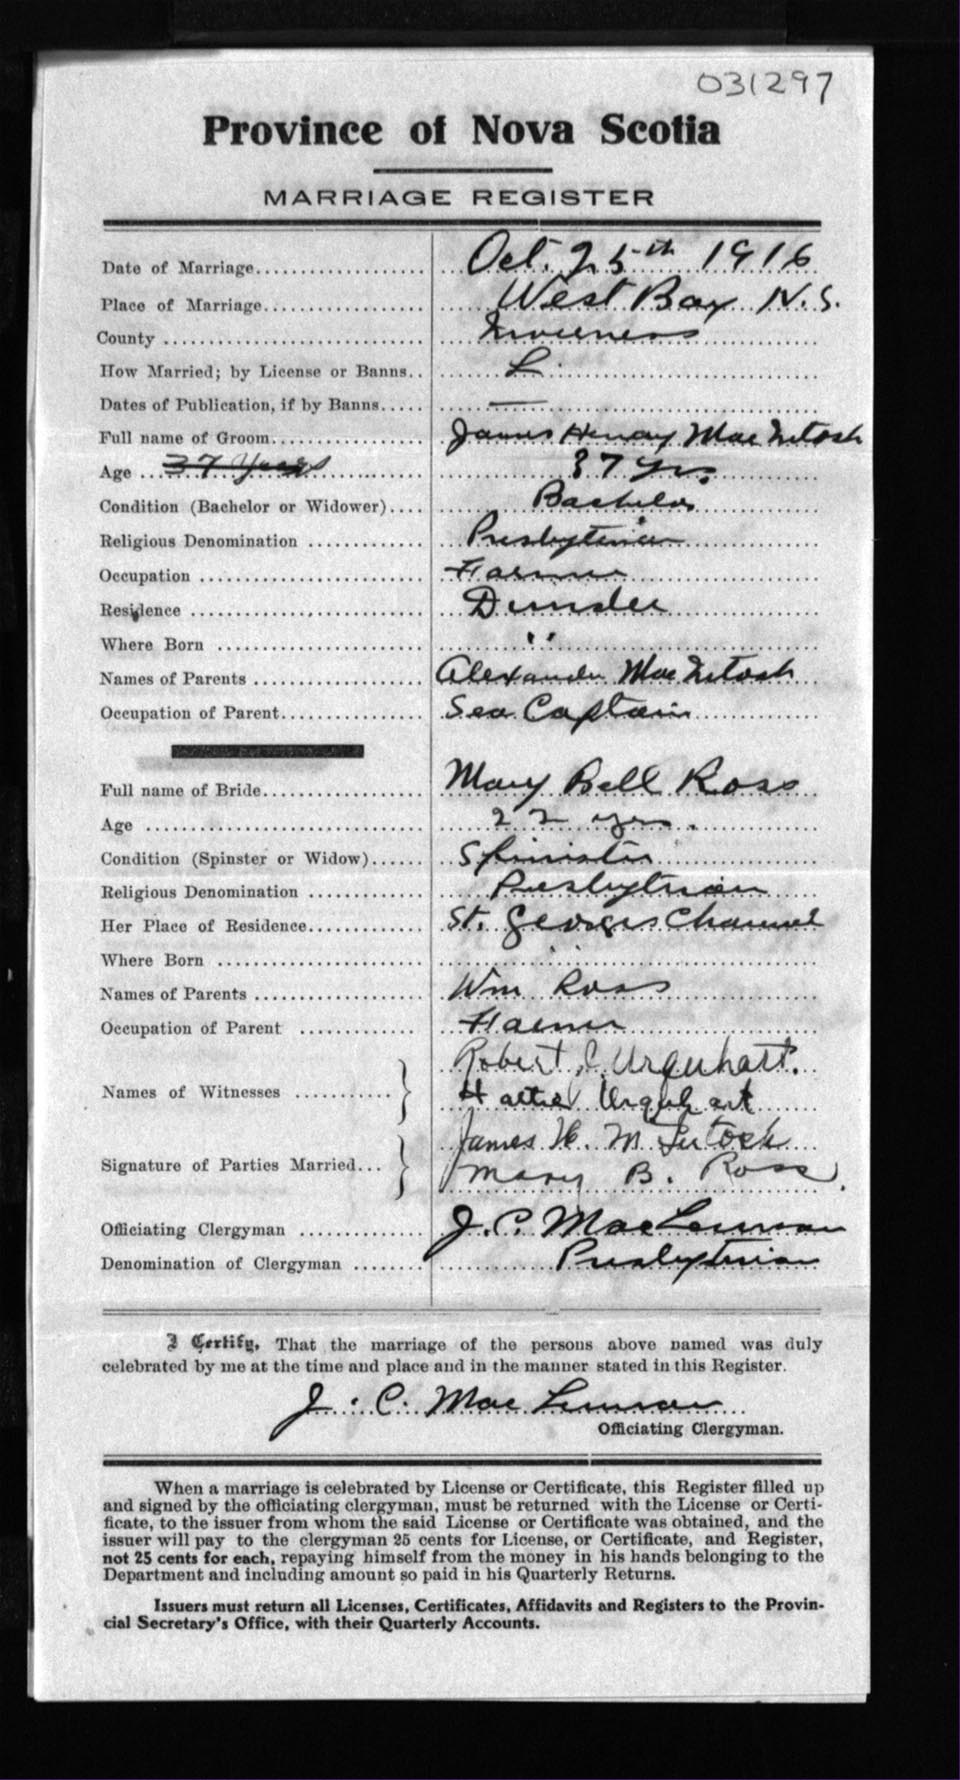 031297
Province of Nova Scotia
MARRIAGE REGISTER
Date of Marriage.................... Oct. 25th 1916
Place of Marriage................... West Bay N.S.
County ............................. Inverness
How Married; by License or Banns.. L
Dates of Publication, if by Banns..... —
Full name of Groom.................. James Henry MacIntosh
Age ... 37 Years ... 37 yrs.
Condition (Bachelor or Widower).... Bachelor
Religious Denomination ............. Presbyterian
Occupation ......................... Farmer
Residence .......................... Dundee
Where Born ........................ " 
Names of Parents ................... Alexander MacIntosh
Occupation of Parent................ Sea Captain
Full name of Bride.................. Mary Bell Ross
Age ................................ 22 yrs.
Condition (Spinster or Widow)...... Spinster
Religious Denomination ............. Presbyterian
Her Place of Residence.............. St. Georges Channel
Where Born ........................ "
Names of Parents ................... Wm Ross
Occupation of Parent ............... Farmer
Robert J. Urquhart.
Names of Witnesses ............ Hattie Urquhart
James H. McIntosh
Signature of Parties Married... Mary B. Ross.
Officiating Clergyman .............. J.C. MacLennan
Denomination of Clergyman ........ Presbyterian
I Certify, That the marriage of the persons above named was duly
celebrated by me at the time and place and in the manner stated in this Register.
J. C. MacLennan
Officiating Clergyman.
When a marriage is celebrated by License or Certificate, this Register filled up
and signed by the officiating clergyman, must be returned with the License or Certi-
ficate, to the issuer from whom the said License or Certificate was obtained, and the
issuer will pay to the clergyman 25 cents for License, or Certificate, and Register,
not 25 cents for each, repaying himself from the money in his hands belonging to the
Department and including amount so paid in his Quarterly Returns.
Issuers must return all Licenses, Certificates, Affidavits and Registers to the Provin-
cial Secretary's Office, with their Quarterly Accounts.